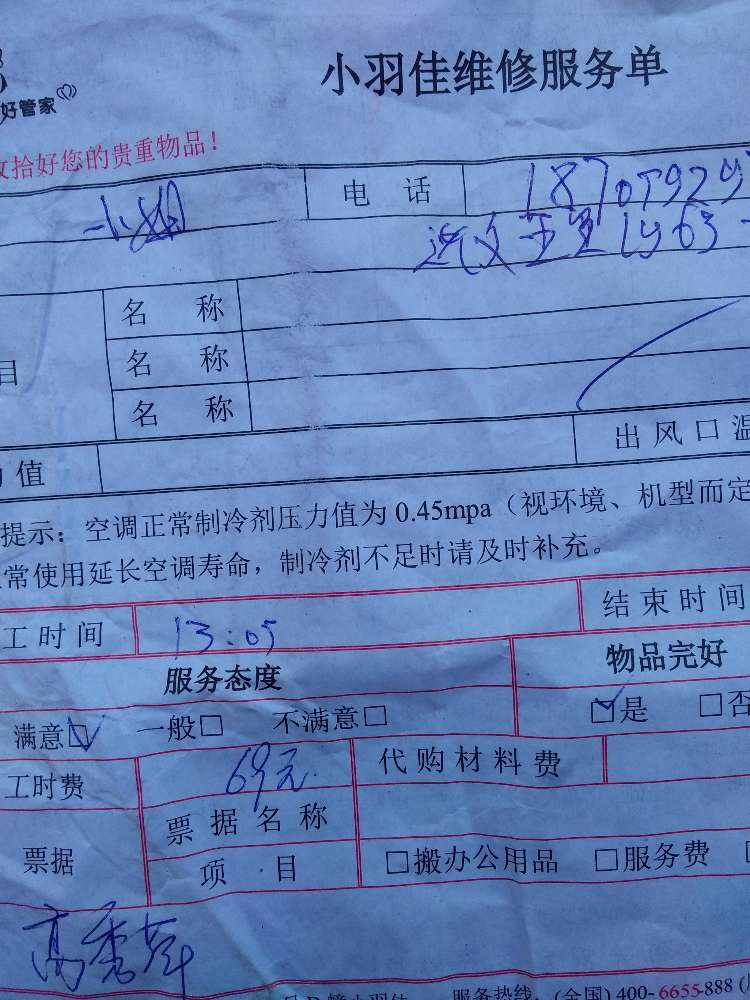 小羽佳维修服务单
好管家
收拾好您的贵重物品！
电 话 18705929
名 称
名 称
目
名 称
力值 出风口温
提示：空调正常制冷剂压力值为 0.45mpa（视环境、机型而定
常使用延长空调寿命，制冷剂不足时请及时补充。
工时间 13:05 结束时间
服务态度 物品完好
满意☑ 一般□ 不满意□ ☑是 □否
工时费 69元. 代购材料费
票据 票据名称
项 目 □搬办公用品 □服务费
高秀萍
服务热线：(全国) 400-6655-888